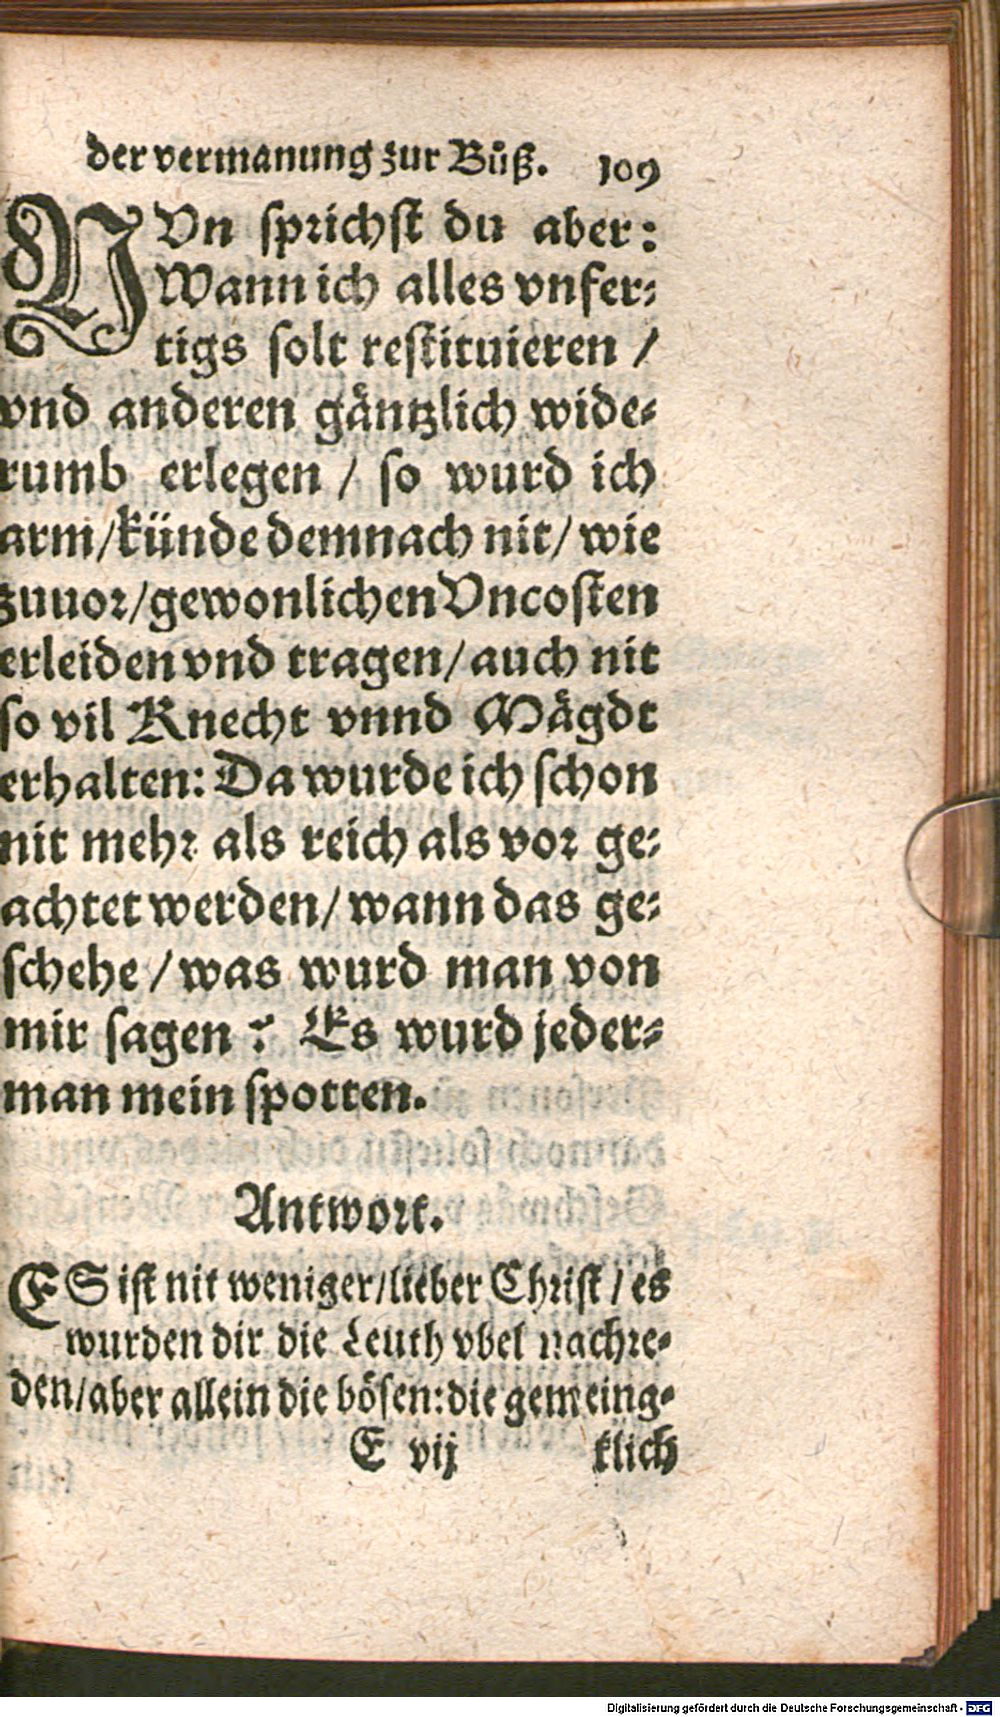 der vermanung zur Bůß. 109
NVn sprichst du aber:
Wann ich alles vnfer-
tigs solt restituieren /
vnd anderen gäntzlich wide-
rumb erlegen / so wurd ich
arm / künde demnach nit / wie
zuuor / gewonlichen Vncosten
erleiden vnd tragen / auch nit
so vil Knecht vnnd Mägdt
erhalten: Da wurde ich schon
nit mehr als reich als vor ge-
achtet werden / wann das ge-
schehe / was wurd man von
mir sagen? Es wurd jeder-
man mein spotten.
Antwort.
ES ist nit weniger / lieber Christ / es
wurden dir die Leuth vbel nachre-
den / aber allein die bösen: die gemeing-
E vij klich
Digitalisierung gefördert durch die Deutsche Forschungsgemeinschaft - DFG